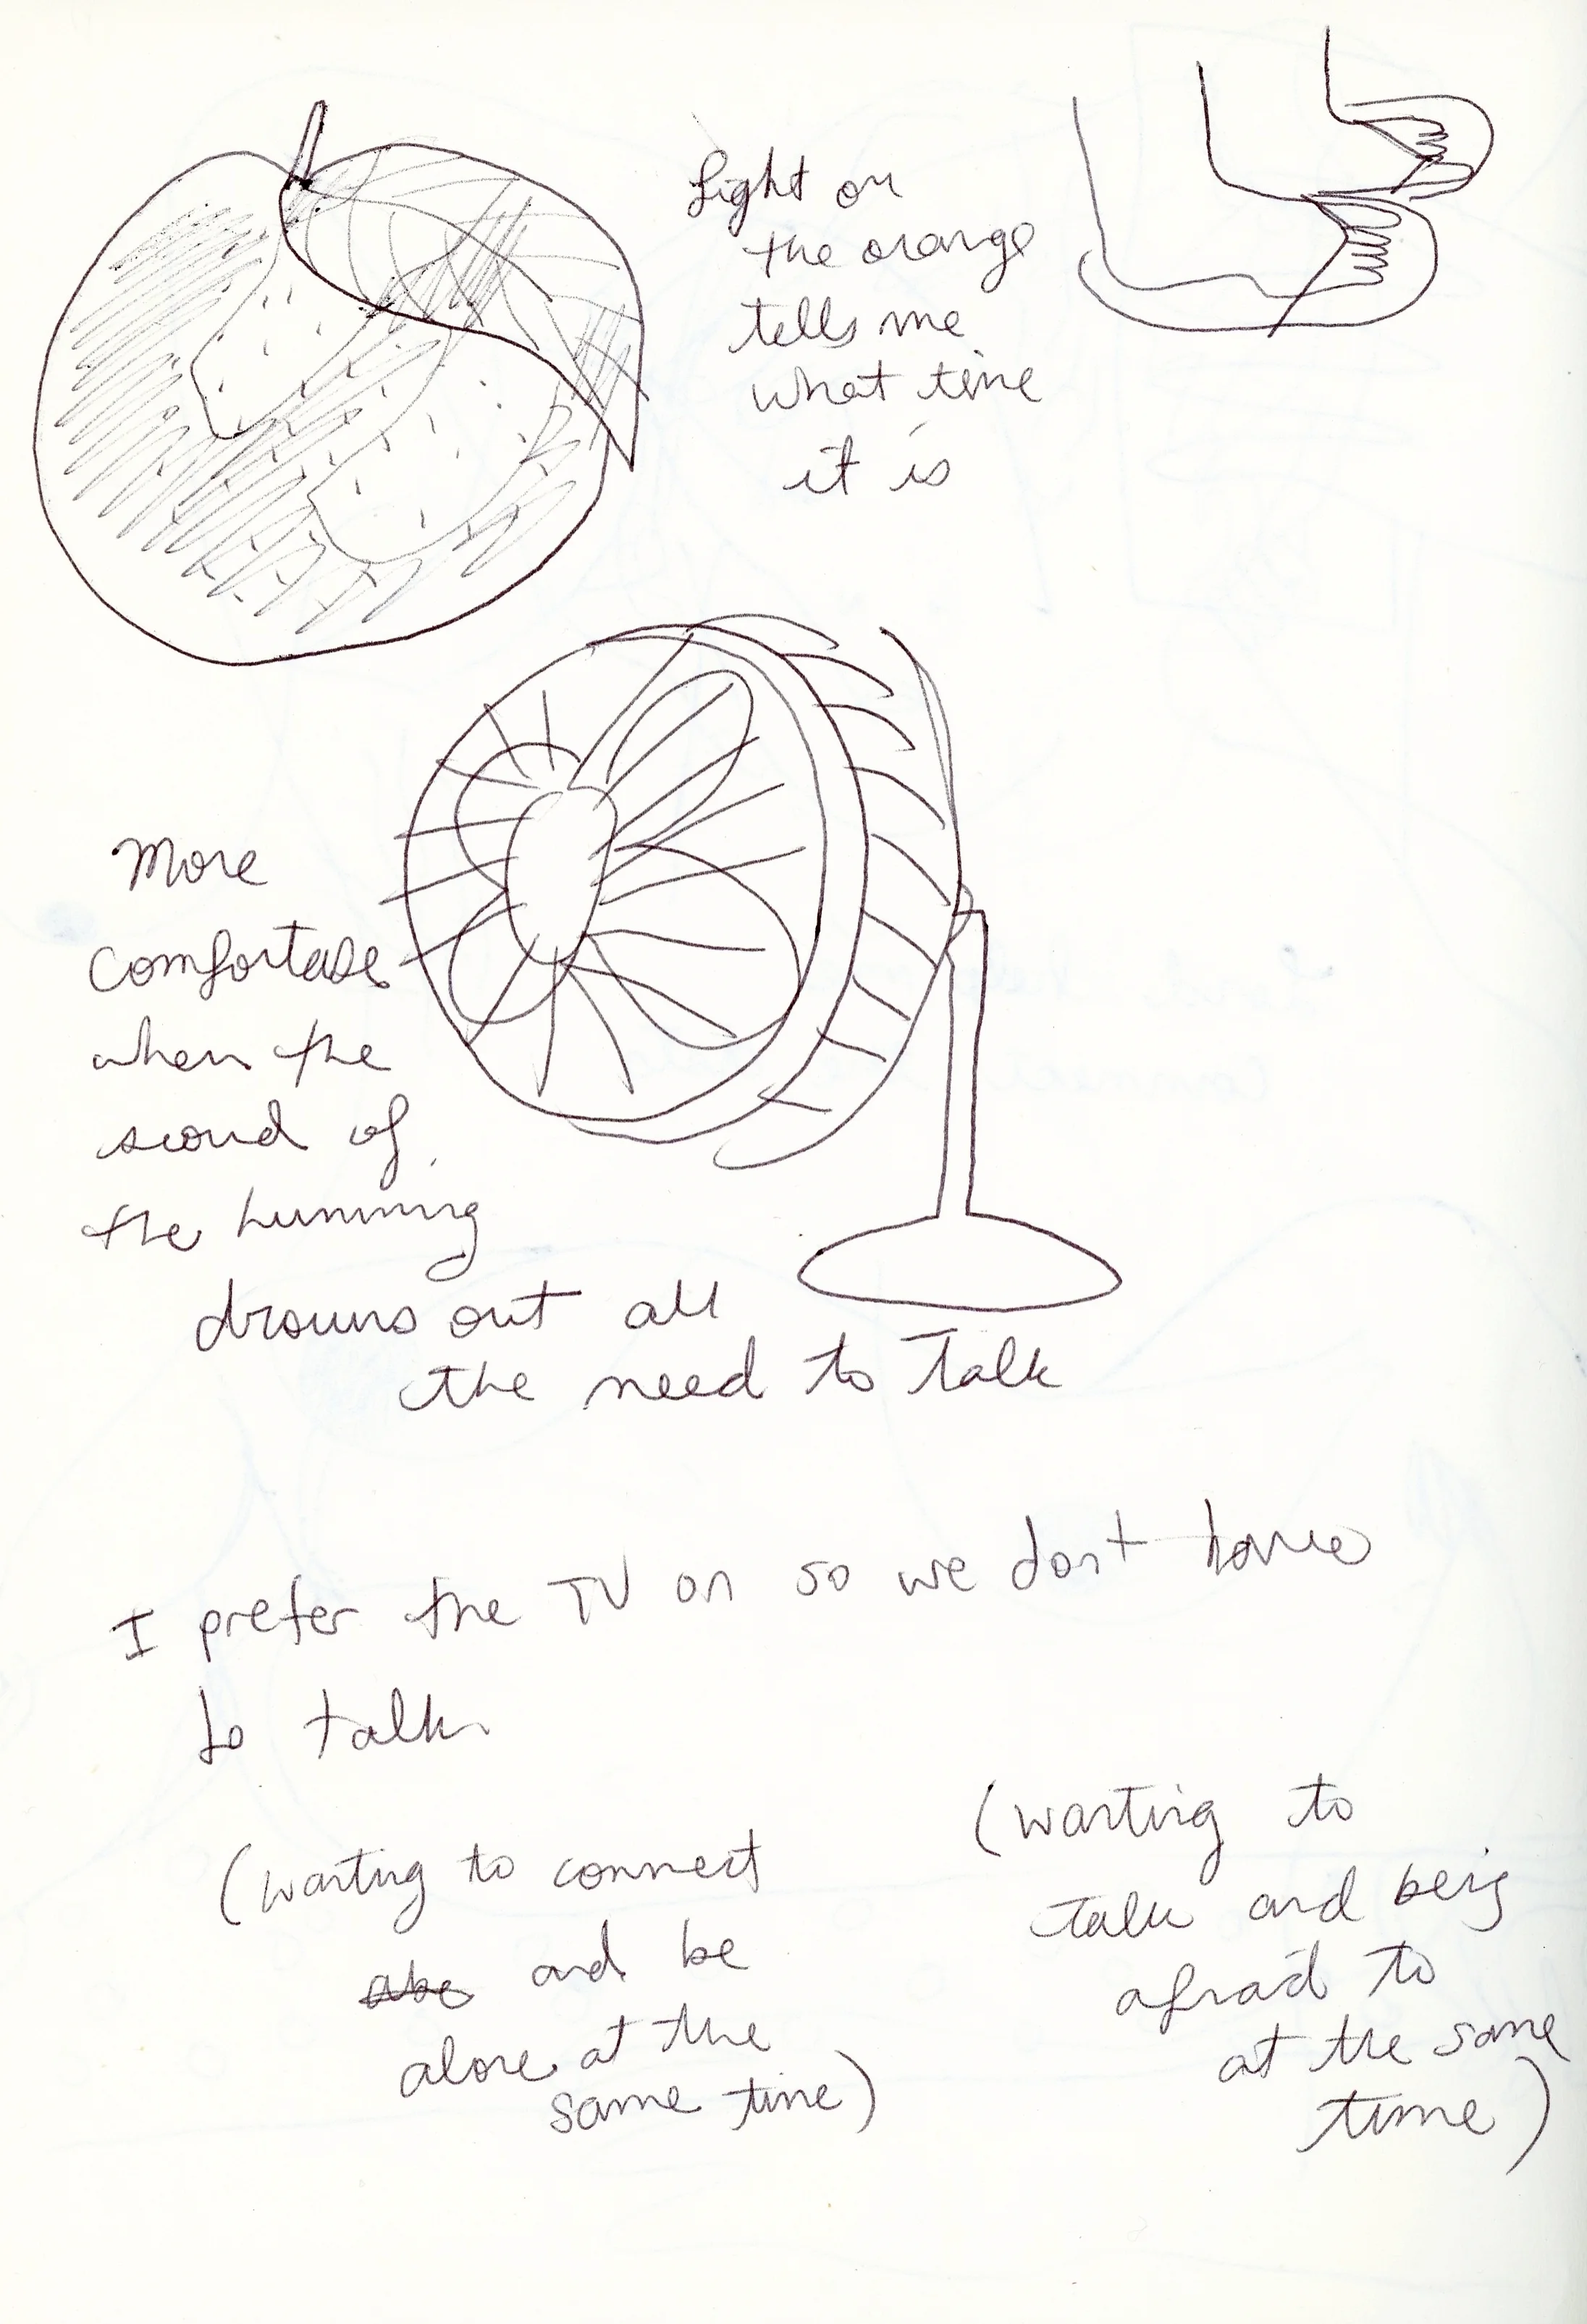 Light on
the orange
tells me
what time
it is
More
comfortable
when the
sound of
the humming
drowns out all
the need to talk
I prefer the TV on so we don't have
to talk
(wanting to connect
and be
alone at the
same time)
(wanting to
talk and being
afraid to
at the same
time)